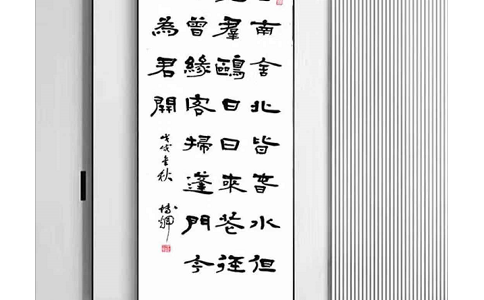 南舍北皆春水但
羣鷗日日來花徑
曾緣客掃蓬門今
為君開
戊戌秋